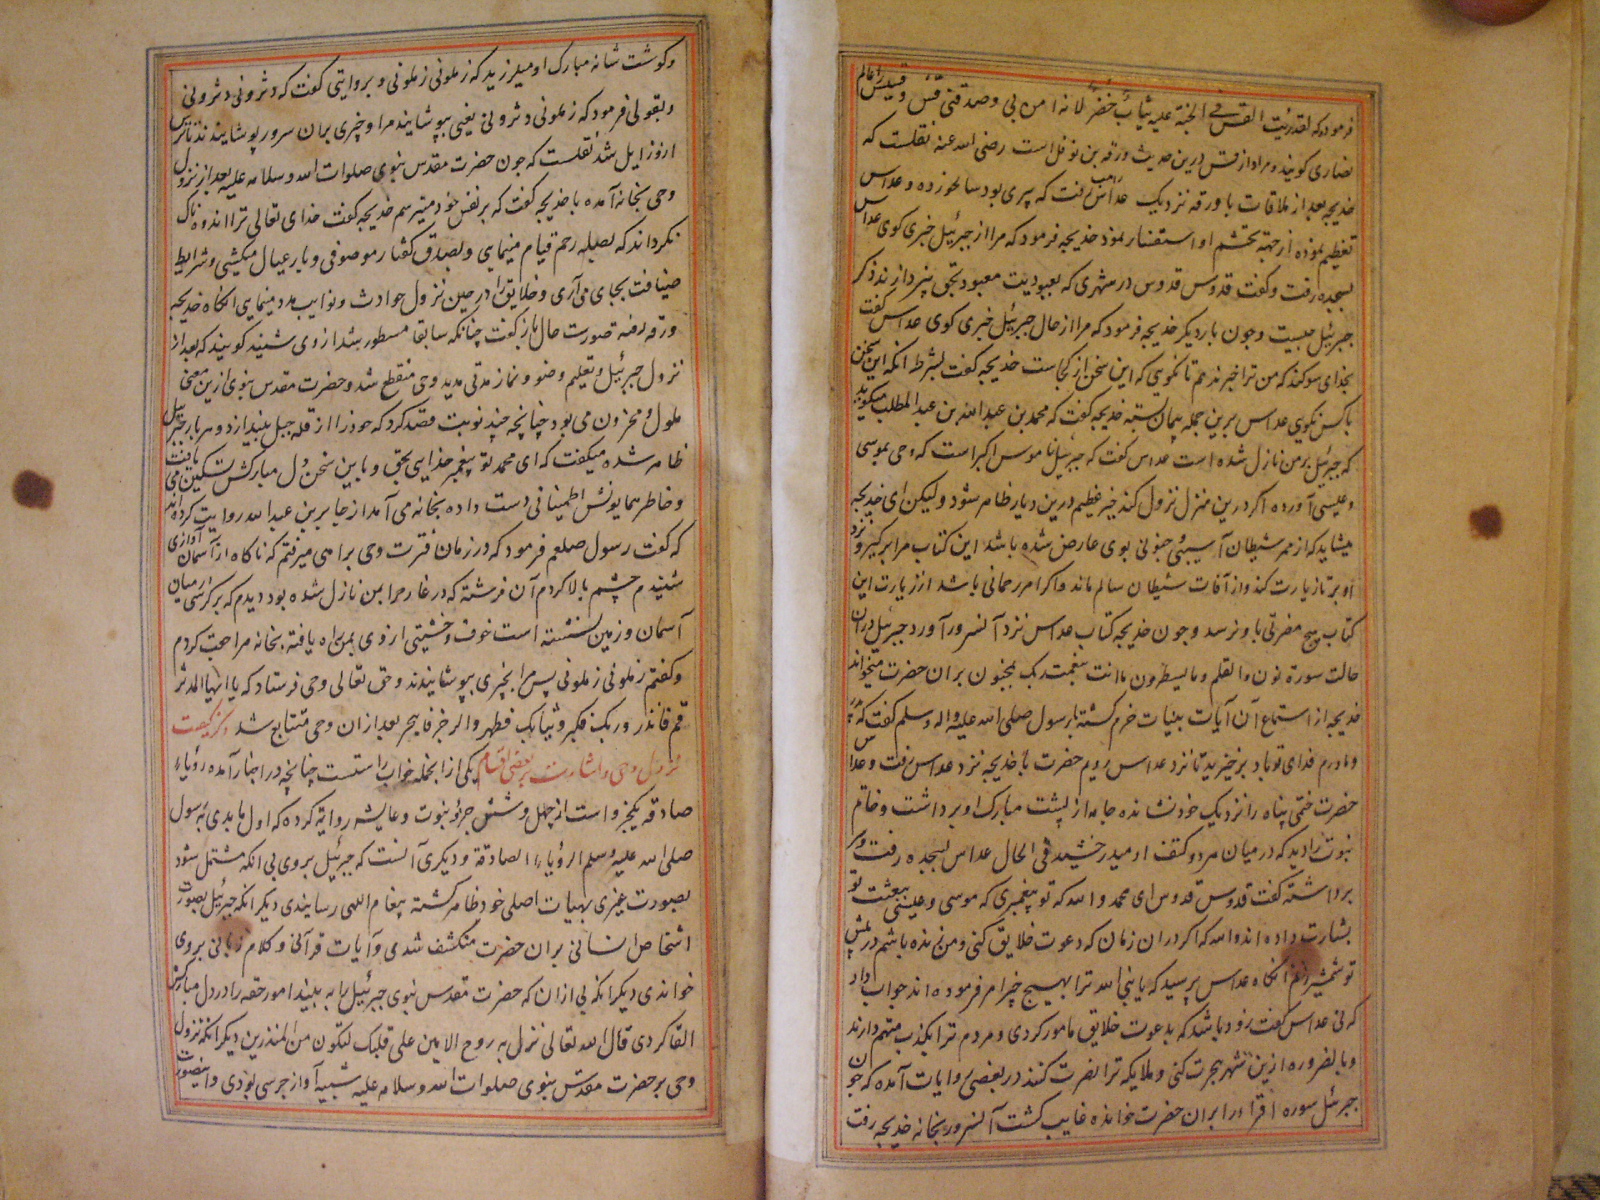 فرموده که لقد رایت القس فی الجنة علیه ثیاب خضر لانه امن بی و صدقنی قس و قسیس عالم
نصاری کویند و مراد از قس درین حدیث ورقه بن نوفل است رضی الله عنه نقلست که
خدیجه بعد از ملاقات با ورقه نزدیک عداس راهب رفت که پیری بود سالخورده و عداس
تعظیم نموده از جهة تخشم او استفسار نمود خدیجه فرمود که مرا از جبرئیل خبری کوی عداس
بسجده رفت و کفت قدوس قدوس در شهری که بعبودیت معبود بحق نپردازند ذکر
جبرئیل چیست و چون بار دیکر خدیجه فرمود که مرا از حال جبرئیل خبری کوی عداس کفت
بخدای سوکند که من ترا خبر ندهم تا نکویی که این سخن از کجاست خدیجه کفت بشرط انکه این سخن
با کس نکویی عداس برین جمله پیمان بسته خدیجه کفت که محمد بن عبد الله بن عبد المطلب میکوید
که جبرئیل بر من نازل شده است عداس کفت که جبرئیل ناموس اکبر است که وحی بموسی
و عیسی آورده اکر درین منزل نزول کند خیر عظیم درین دیار ظاهر شود ولیکن ای خدیجه
میشاید که از ممر شیطان آسیبی و جنونی بوی عارض شده باشد این کتاب مرا برکیر و نزد
او بر تا زیارت کند و از آفات شیطان سالم ماند و اکر امر رحمانی باشد از زیارت این
کتاب هیچ مضرتی باو نرسد و چون خدیجه کتاب عداس نزد آنسرور آورد جبرئیل دران
حالت سورة نون والقلم وما یسطرون ما انت بنعمت ربک بمجنون بران حضرت میخواند
خدیجه از استماع آن آیات بینات خرم کشته با رسول صلی الله علیه واله وسلم کفت که پدر
و مادرم فدای تو باد برخیزید تا نزد عداس رویم حضرت با خدیجه نزد عداس رفت و عداس
حضرت ختمی پناه را نزدیک خود نشانده جامه از پشت مبارک او برداشت و خاتم
نبوت را دید که در میان هر دو کتف او میدرخشید فی الحال عداس بسجده رفت و سر
برداشته کفت قدوس قدوس ای محمد والله که تو پیغمبری که موسی و عیسی ببعثت تو
بشارت داده اند والله که اکر دران زمان که دعوت خلایق کنی و من زنده باشم در پیش
تو شمشیر زنم انکاه عداس پرسید که یا نبی الله ترا بهیچ چیز امر فرموده اند جواب داد
که نی عداس کفت زود باشد که بدعوت خلایق مامور کردی و مردم ترا بکذب متهم دارند
و بالضروره ازین شهر هجرت کنی و ملایکه ترا نصرت کنند در بعضی روایات آمده که چون
جبرئیل سوره اقرا را بران حضرت خوانده غایب کشت آنسرور بخانه خدیجه رفت
و کوشت شانه مبارک او میلرزید که زملونی زملونی و بروایتی کفت که دثرونی دثرونی
و بقولی فرمود که زملونی دثرونی یعنی بپوشایند مرا و چیزی بران سرور پوشایندند تا ترس
ازو زایل شد نقلست که چون حضرت مقدس نبوی صلوات الله وسلامه علیه بعد از نزول
وحی بخانه آمده با خدیجه کفت که بر نفس خود میترسم خدیجه کفت خدای تعالی ترا اندوهناک
نکرداند که بصله رحم قیام مینمایی و بصدق کفتار موصوفی و بار عیال میکشی و شرایط
ضیافت بجای می آری و خلایق را در حین نزول حوادث و نوایب مدد مینمایی انکاه خدیجه
ورقه رفته صورت حال باز کفت چنانکه سابقا مسطور شد از وی شنید کویند که بعد از
نزول جبرئیل و تعلیم وضو و نماز مدتی مدید وحی منقطع شد و حضرت مقدس نبوی ازین معنی
ملول و محزون می بود چنانچه چند نوبت قصد کرد که خود را از قله جبل بیندازد و هر بار جبرئیل
ظاهر شده میکفت که ای محمد تو پیغمبر خدایی بحق و باین سخن دل مبارکش تسکین می یافت
و خاطر همایونش اطمینانی دست داده بخانه می آمد از جابر بن عبد الله روایت کرده اند
که کفت رسول صلعم فرمود که در زمان فترت وحی براهی میرفتم که ناکاه از آسمان آوازی
شنیدم چشم بالا کردم آن فرشته که در غار حرا بمن نازل شده بود دیدم که بر کرسی میان
آسمان و زمین نشسته است خوف و خشیتی از وی بمن راه یافته بخانه مراجعت کردم
و کفتم زملونی زملونی پس مرا بچیزی بپوشایندند و حق تعالی وحی فرستاد که یا ایها المدثر
قم فانذر وربک فکبر وثیابک فطهر والرجز فاهجر بعد ازان وحی متتابع شد ذکر کیفیت
نزول وحی و اشارت بر بعضی اقسام یکی از انجمله خواب راستست چنانچه در اخبار آمده رؤیاء
صادقه یکجزو است از چهل و شش جزو نبوت و عایشه روایة کرده که اول ما بدئ به رسول
صلی الله علیه وسلم الرؤیاء الصادقة و دیکری آنست که جبرئیل بر وی بی انکه مشتمل شود
بصورت غیری بهیات اصلی خود ظاهر کشته پیغام الهی رسایندی دیکر انکه جبرئیل بصورت
اشخاص انسانی بران حضرت منکشف شدی و آیات قرآنی و کلام ربانی بر وی
خواندی دیکر انکه بی ازان که حضرت مقدس نبوی جبرئیل را به بیند امور حقه را در دل مبارکش
القا کردی قال الله تعالی نزل به روح الامین علی قلبک لتکون من المنذرین دیکر انکه نزول
وحی بر حضرت مقدس نبوی صلوات الله وسلامه علیه شبیه آواز جرسی بودی و اینصورت